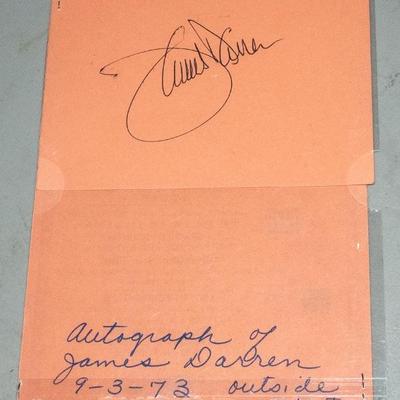 James Darren
Autograph of
James Darren
9-3-73 outside